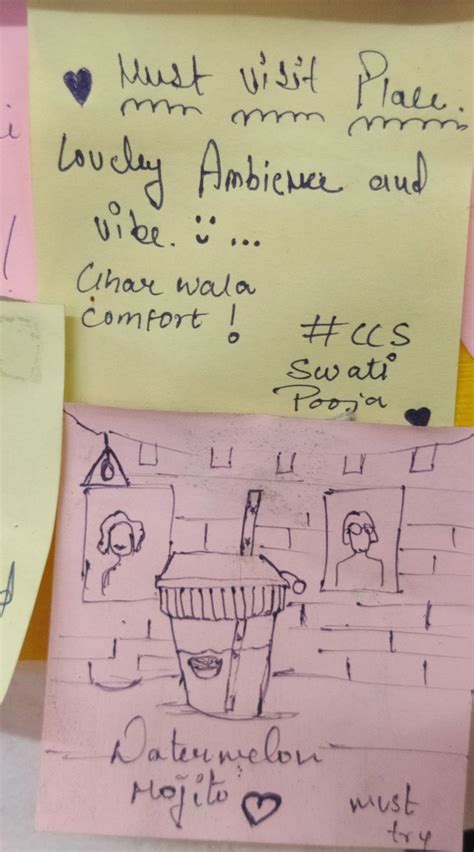 Must visit Place.
Lovely Ambience and
vibe. ...
Ghar wala
comfort !
#CCS
Swati
Pooja
Watermelon
Mojito
must
try